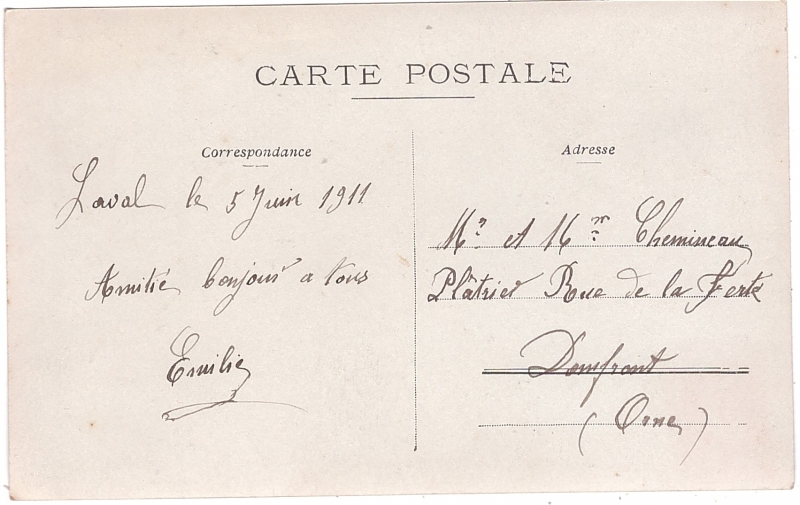 CARTE POSTALE
Correspondance
Laval le 5 Juin 1911
Amitié bonjour a tous
Emilie
Adresse
Mr et Mme Chemineau
Plâtrier Rue de la Ferté
Domfront
(Orne)